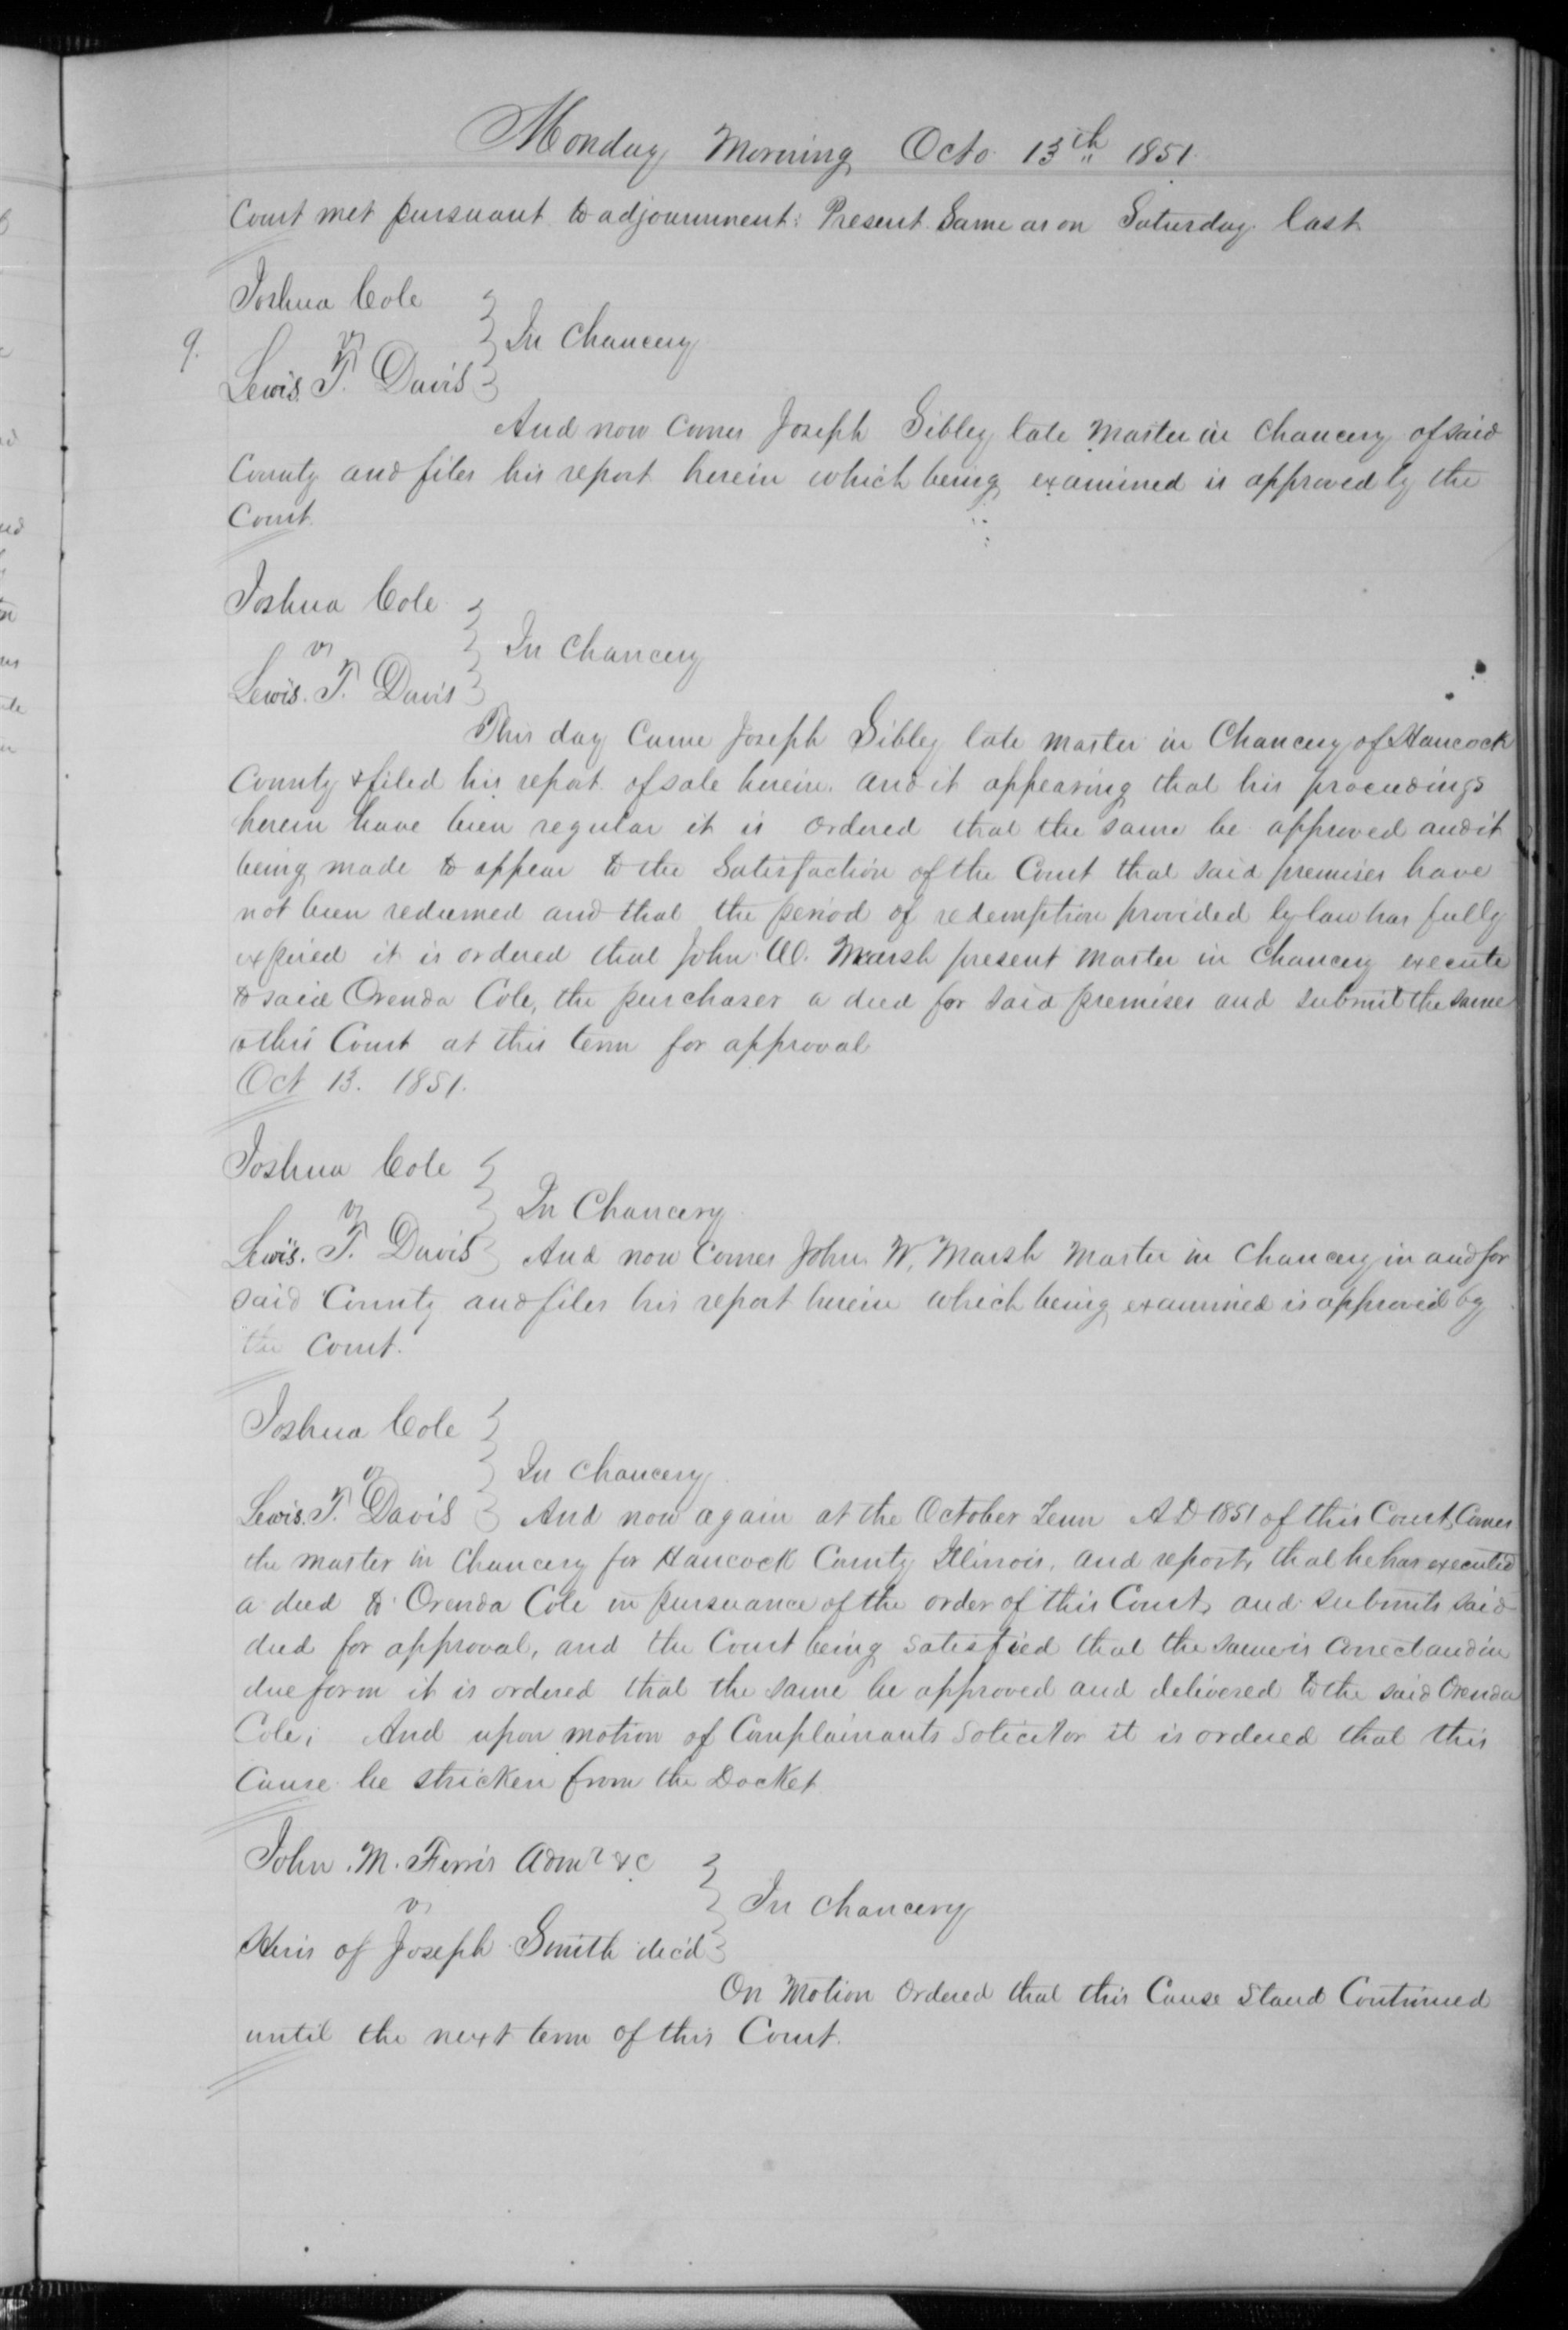 Monday Morning Octo 13th 1851.
Court met pursuant to adjournment: Present Same as on Saturday last
Joshua Cole
vs
In Chancery
9.
Lewis. T. Davis
And now comes Joseph Sibley late Master in Chancery of said
County and files his report herein which being examined is approved by the
Court
Joshua Cole
vs
In Chancery
Lewis. T. Davis
This day Came Joseph Sibley late Master in Chancery of Hancock
County & filed his report of sale herein. and it appearing that his proceedings
herein have been regular it is ordered that the same be approved and it
being made to appear to the Satisfaction of the Court that said premises have
not been redeemed and that the period of redemption provided by law has fully
expired it is ordered that John W. Marsh present Master in Chancery execute
to said Orenda Cole, the purchaser a deed for said premises and submit the same
to this Court at this term for approval
Oct 13. 1851.
Joshua Cole
vs
In Chancery
Lewis. T. Davis And now Comes John W. Marsh Master in Chancery in and for
said County and files his report herein which being examined is approved by
the Court.
Joshua Cole
vs
In Chancery
Lewis. T. Davis And now again at the October Term A D 1851 of this Court, Comes
the master in Chancery for Hancock County Illinois, and reports that he has executed
a deed to Orenda Cole in pursuance of the order of this Court, and submits said
deed for approval, and the Court being satisfied that the same is correct and in
due form it is ordered that the same be approved and delivered to the said Orenda
Cole; And upon motion of Complainants Solicitor it is ordered that this
Cause be stricken from the Docket
John. M. Ferris Admr &c
vs
In Chancery
Heirs of Joseph Smith dec'd
On Motion Ordered that this Cause Stand Continued
until the next term of this Court.